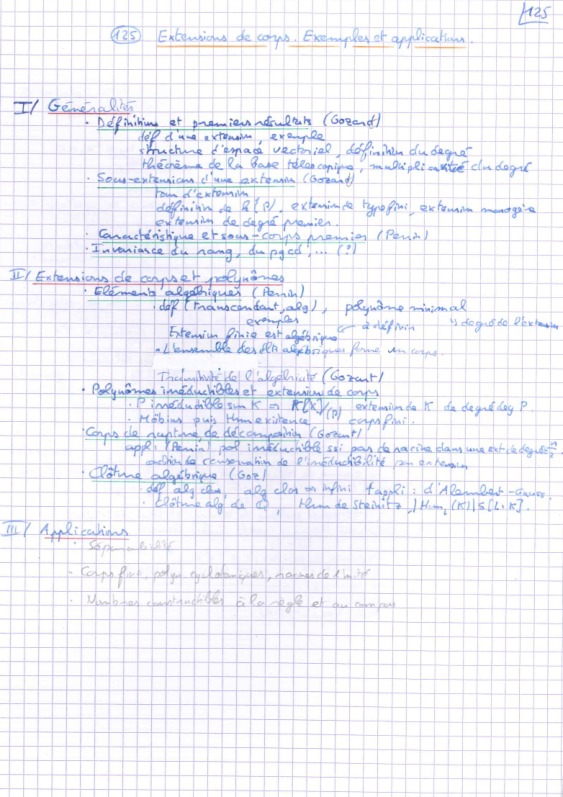 125
125 Extensions de corps. Exemples et applications.
I/ Généralités
· Définitions et premiers résultats (Gozard)
déf d'une extension, exemple
structure d'espace vectoriel, définition du degré
théorème de la base télescopique, multiplicativité du degré
· Sous-extensions d'une extension (Gozard)
tour d'extension
définition de k(P), extension de type fini, extension monogène
extension de degré premier.
· Caractéristique et sous-corps premier (Perrin)
· Invariance du rang, du pgcd, ... (?)
II/ Extensions de corps et polynômes
· Eléments algébriques (Perrin)
· déf (transcendant, alg), polynôme minimal
exemples à définir degré de l'extension
Extension finie est algébrique
· L'ensemble des élts algébriques forme un corps.
Transitivité de l'algébricité (Gozard)
· Polynômes irréductibles et extension de corps
· P irréductible sur K ⇒ K[X]/(P) extension de K de degré deg P
· Möbius puis thm existence corps fini.
· Corps de rupture, de décomposition (Gozard)
appli (Perrin) pol irréductible ssi pas de racine dans une ext de degré
de conservation de l'irréductibilité par extension
· Clôture algébrique (Goz)
déf alg clos, alg clos ⇒ infini + appli : d'Alembert-Gauss.
· Clôture alg de Q, thm de Steinitz,
III/ Applications
· Séparabilité
- Corps finis, polyn cyclotomiques, racines de l'unité
· Nombres constructibles à la règle et au compas